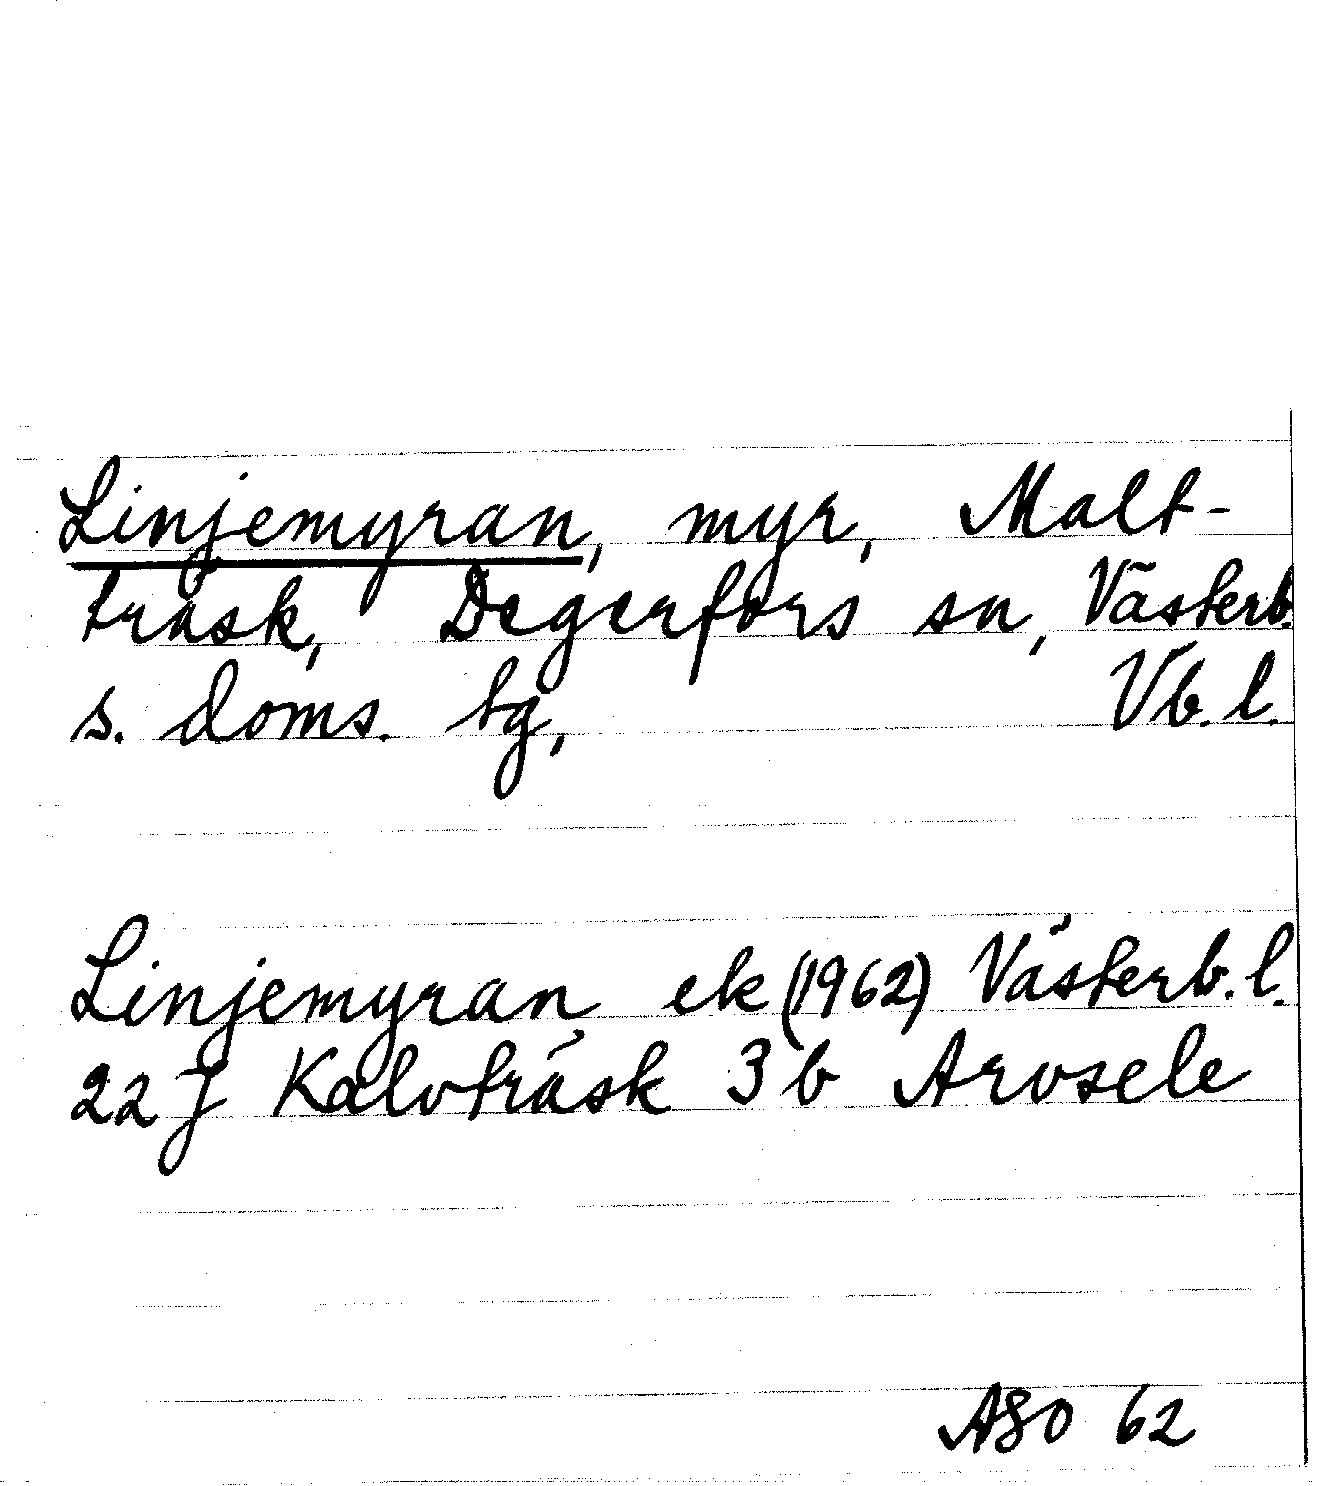 Linjemyran, myr, Malt-
träsk, Degerfors sn, Västerb.
s. doms. tg, Vb. l.
Linjemyran ek (1962) Västerb. l.
22 J Kalvträsk 3 b Arvsele
ASO 62